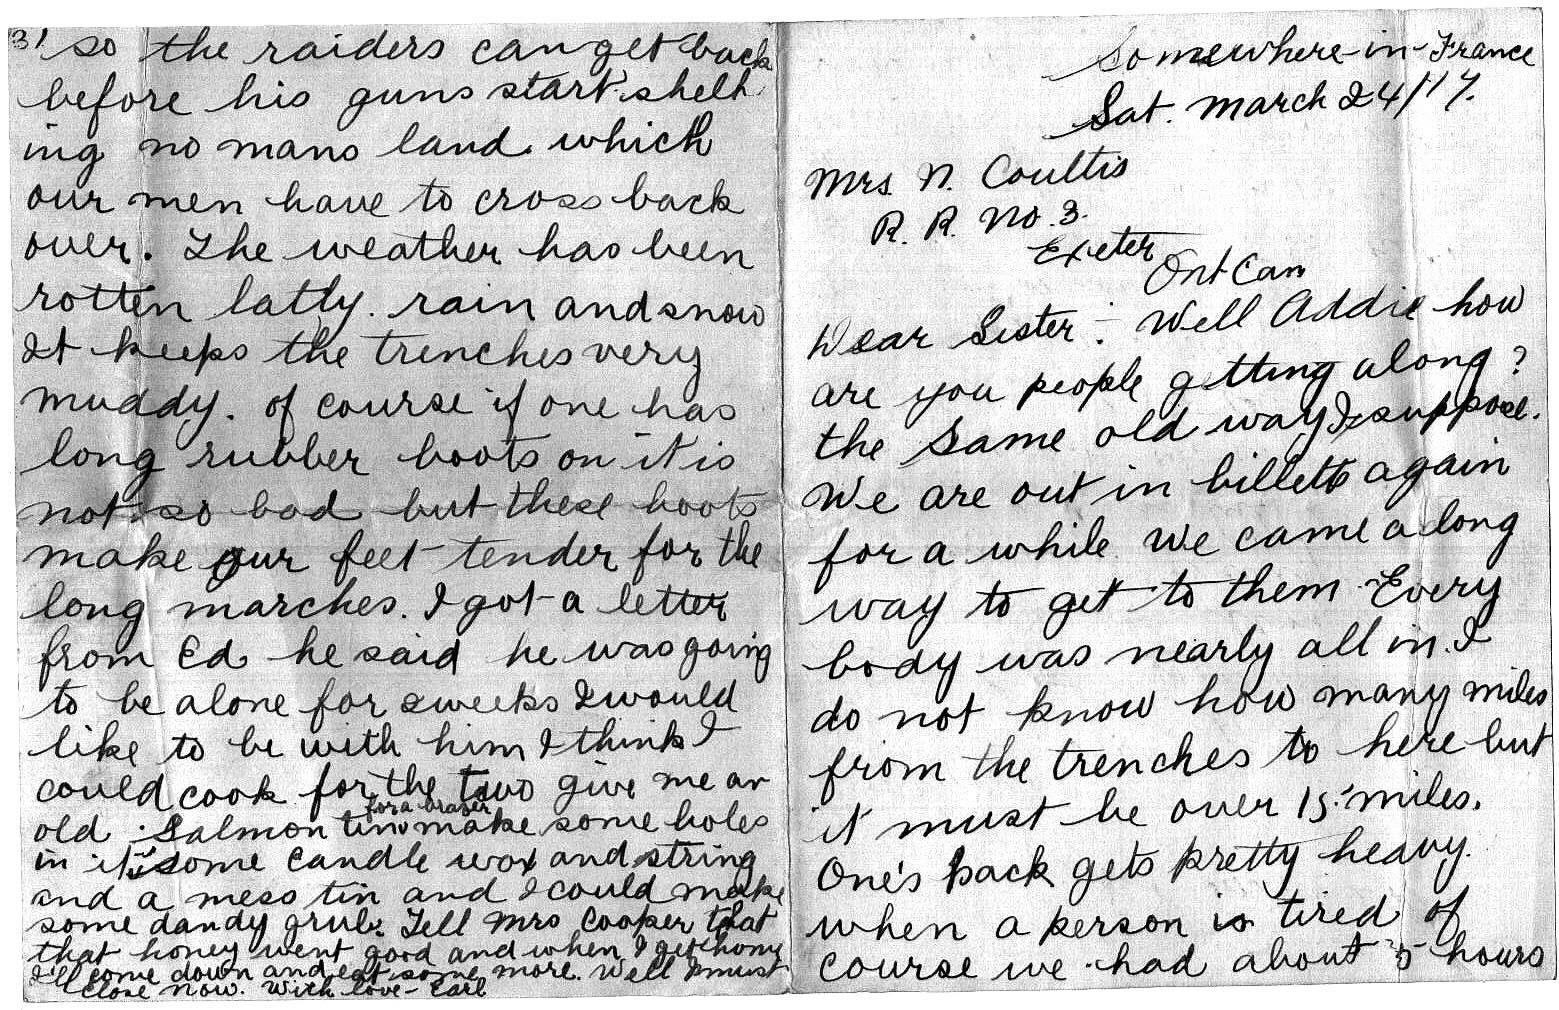 Somewhere-in-France
Sat. March 24/17.
Mrs. N. Coultis
R. R. No. 3.
Exeter
Ont Can
Dear Sister:- Well Addie how
are you people getting along?
the same old way I suppose.
We are out in billetts again
for a while. We came a long
way to get to them. Every
body was nearly all in. I
do not know how many miles
from the trenches to here but
it must be over 15 miles.
One's pack gets pretty heavy.
when a person is tired of
course we had about 5 hours
3) so the raiders can get back
before his guns start shell
ing no mans land. which
our men have to cross back
over. The weather has been
rotten latly. rain and snow
It keeps the trenches very
muddy. of course if one has
long rubber boots on it is
not so bad but these boots
make our feet tender for the
long marches. I got a letter
from Ed he said he was going
to be alone for 2 weeks I would
like to be with him I think I
could cook for the two give me an
for a brazer
old Salmon tin make some holes
in it some candle wax and string
and a mess tin and I could make
some dandy grub. Tell Mrs Cooper that
that honey went good and when I get home
I'll come down and eat some more. Well I must
close now. With love - Earl